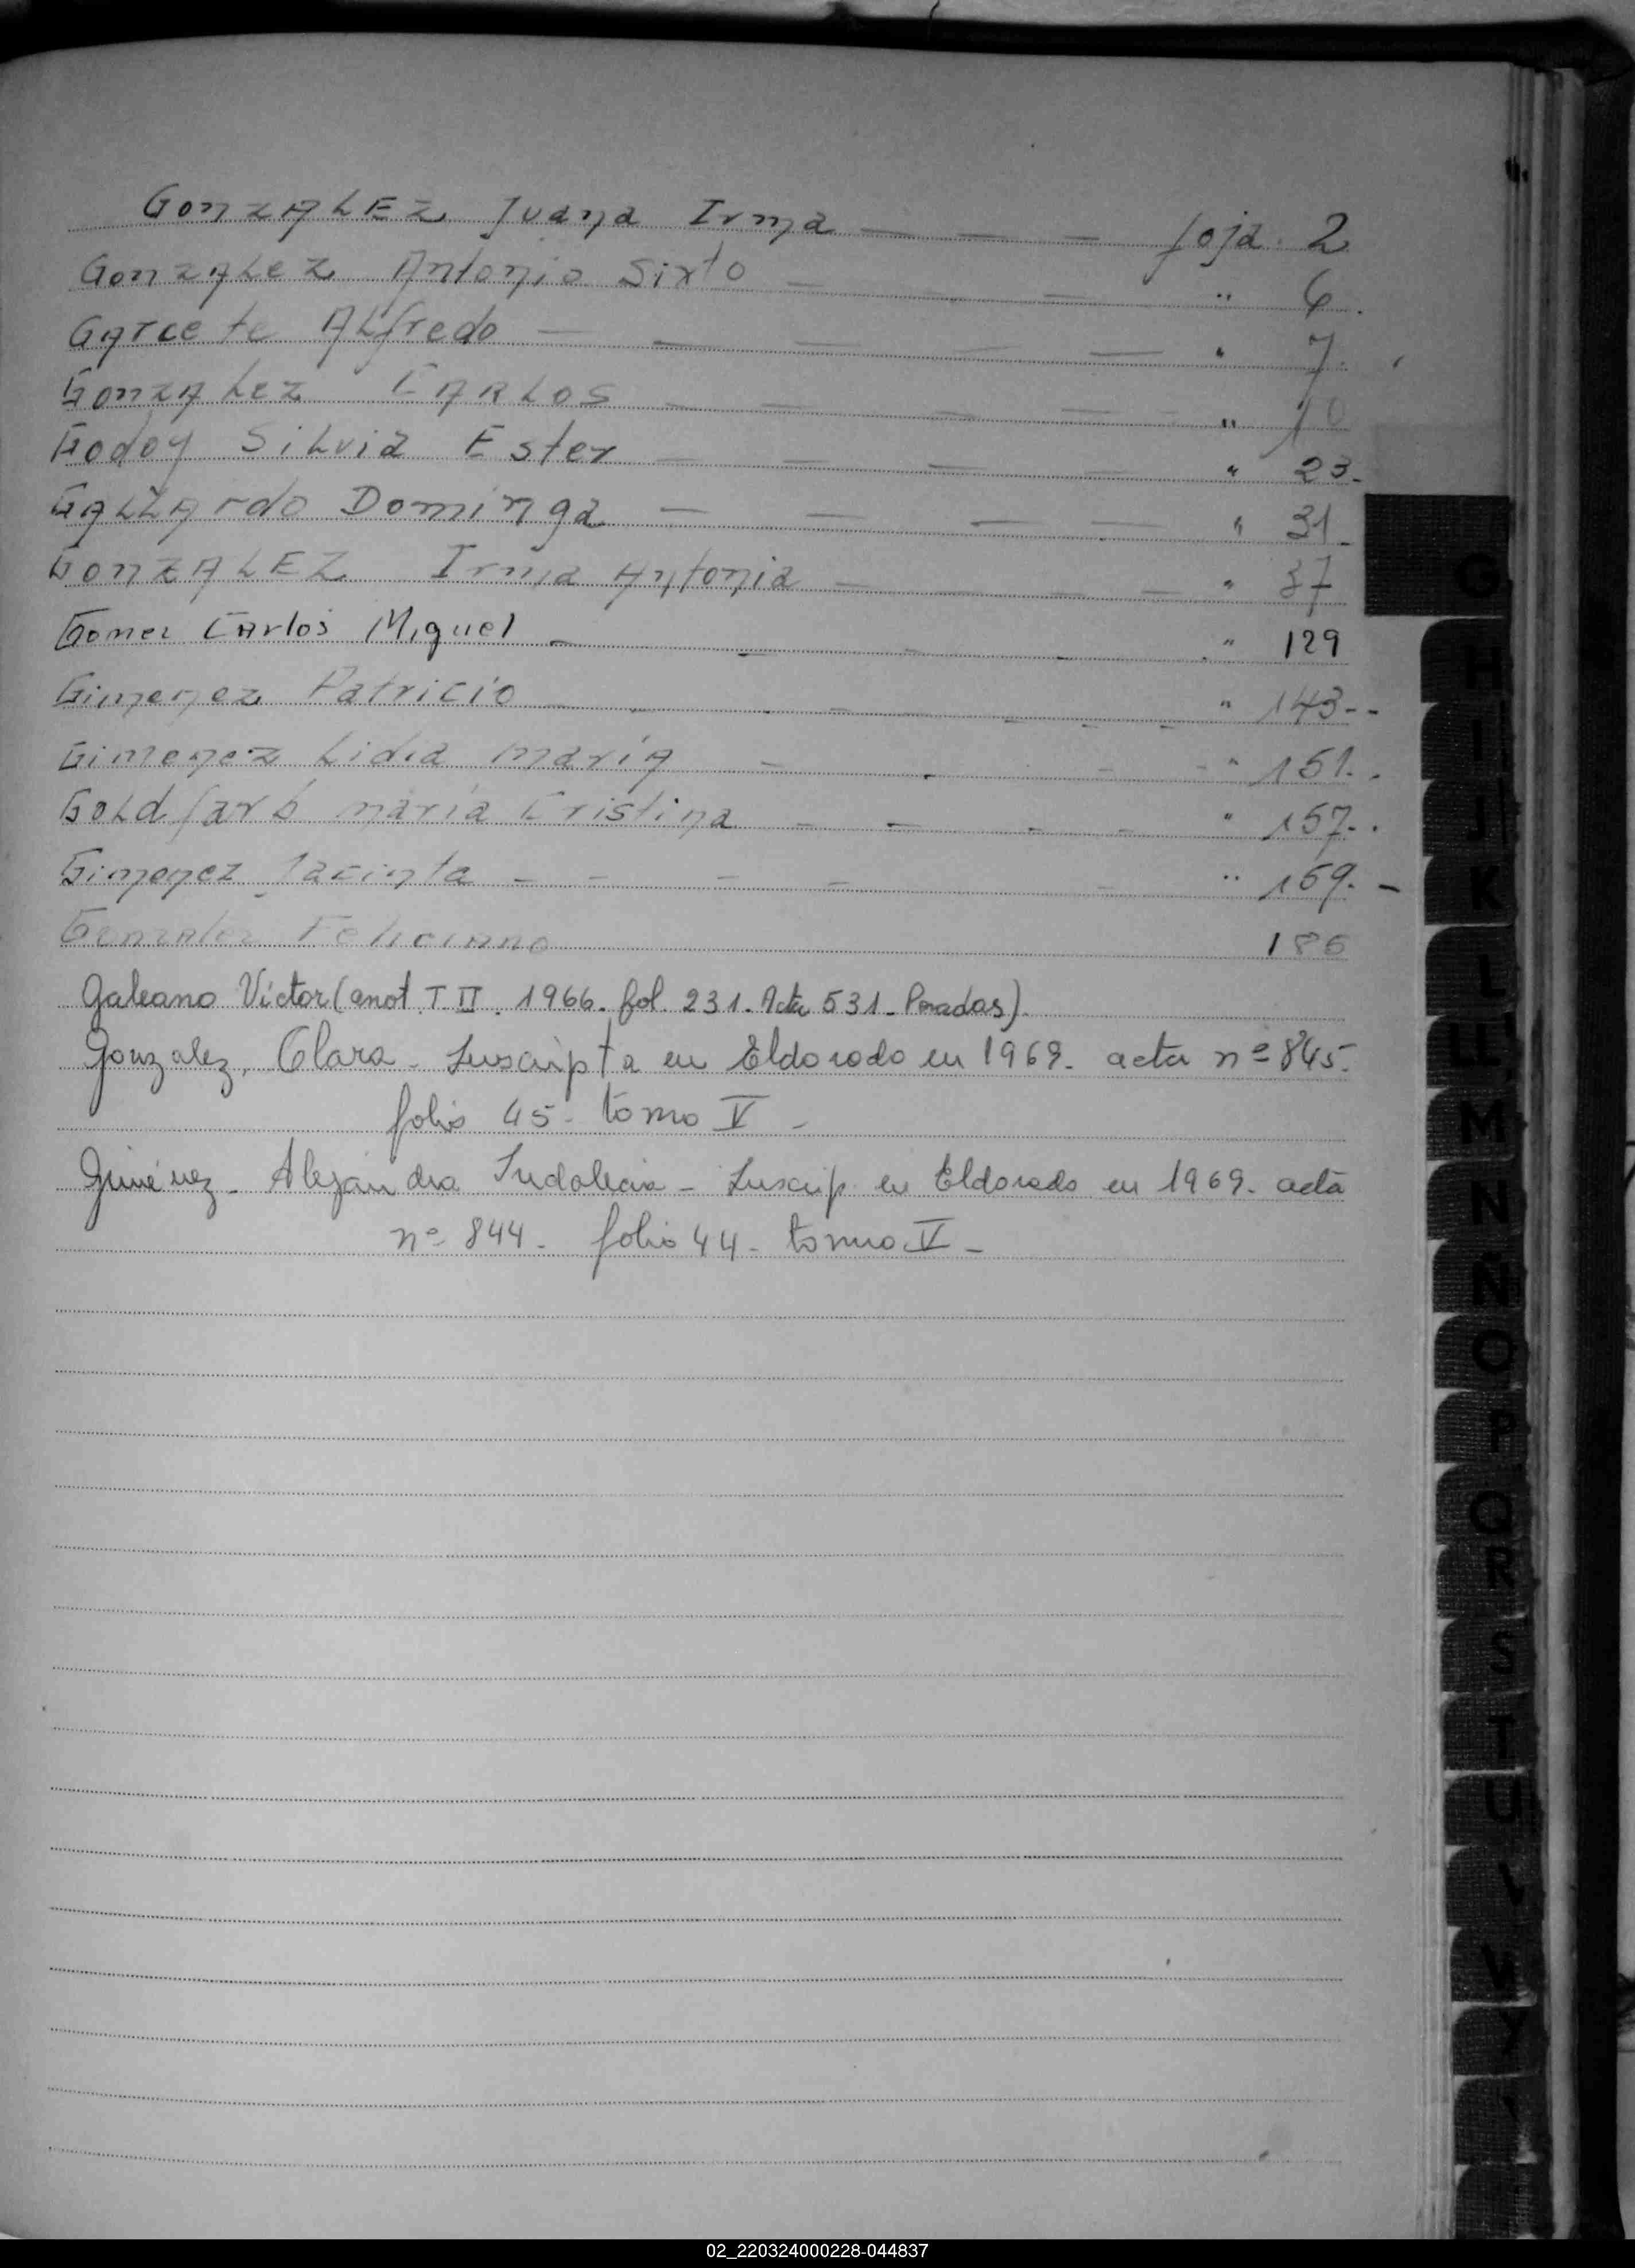 GonzALEz Juana Irma — — — foja. 2
GonzALez Antonio Sixto — — " 6.
GArcete ALfredo — — — — — " 7.
GonzALez CARLOS — — — — " 10
Godoy SiLvia Ester — — — — " 23.
GALLArdo Dominga — — — — " 31.
GonzALEZ Irma Antonia — — — — " 37
Gomez CArlos Miguel — — — — " 129
Gimenez Patricio — — — — " 143--
Gimenez Lidia maríA — — — - " 151..
GoLdfarb maría Cristina — — - - " 157..
Gimenez Jacinta - - - — - " 169. -
Gonzalez Feliciano 186
Galeano Víctor (anot. T II. 1966. fol. 231. Acta 531 - Posadas).
Gonzalez, Clara - Inscripta en Eldorado en 1969. acta nº 845.
folio 45 - tomo V -
Giménez - Alejandra Indalecia - Inscrip en Eldorado en 1969. acta
nº 844 - folio 44 - tomo V -
G
H
I
J
K
L
M
N
Ñ
O
P
Q
R
S
T
U
V
02_220324000228-044837